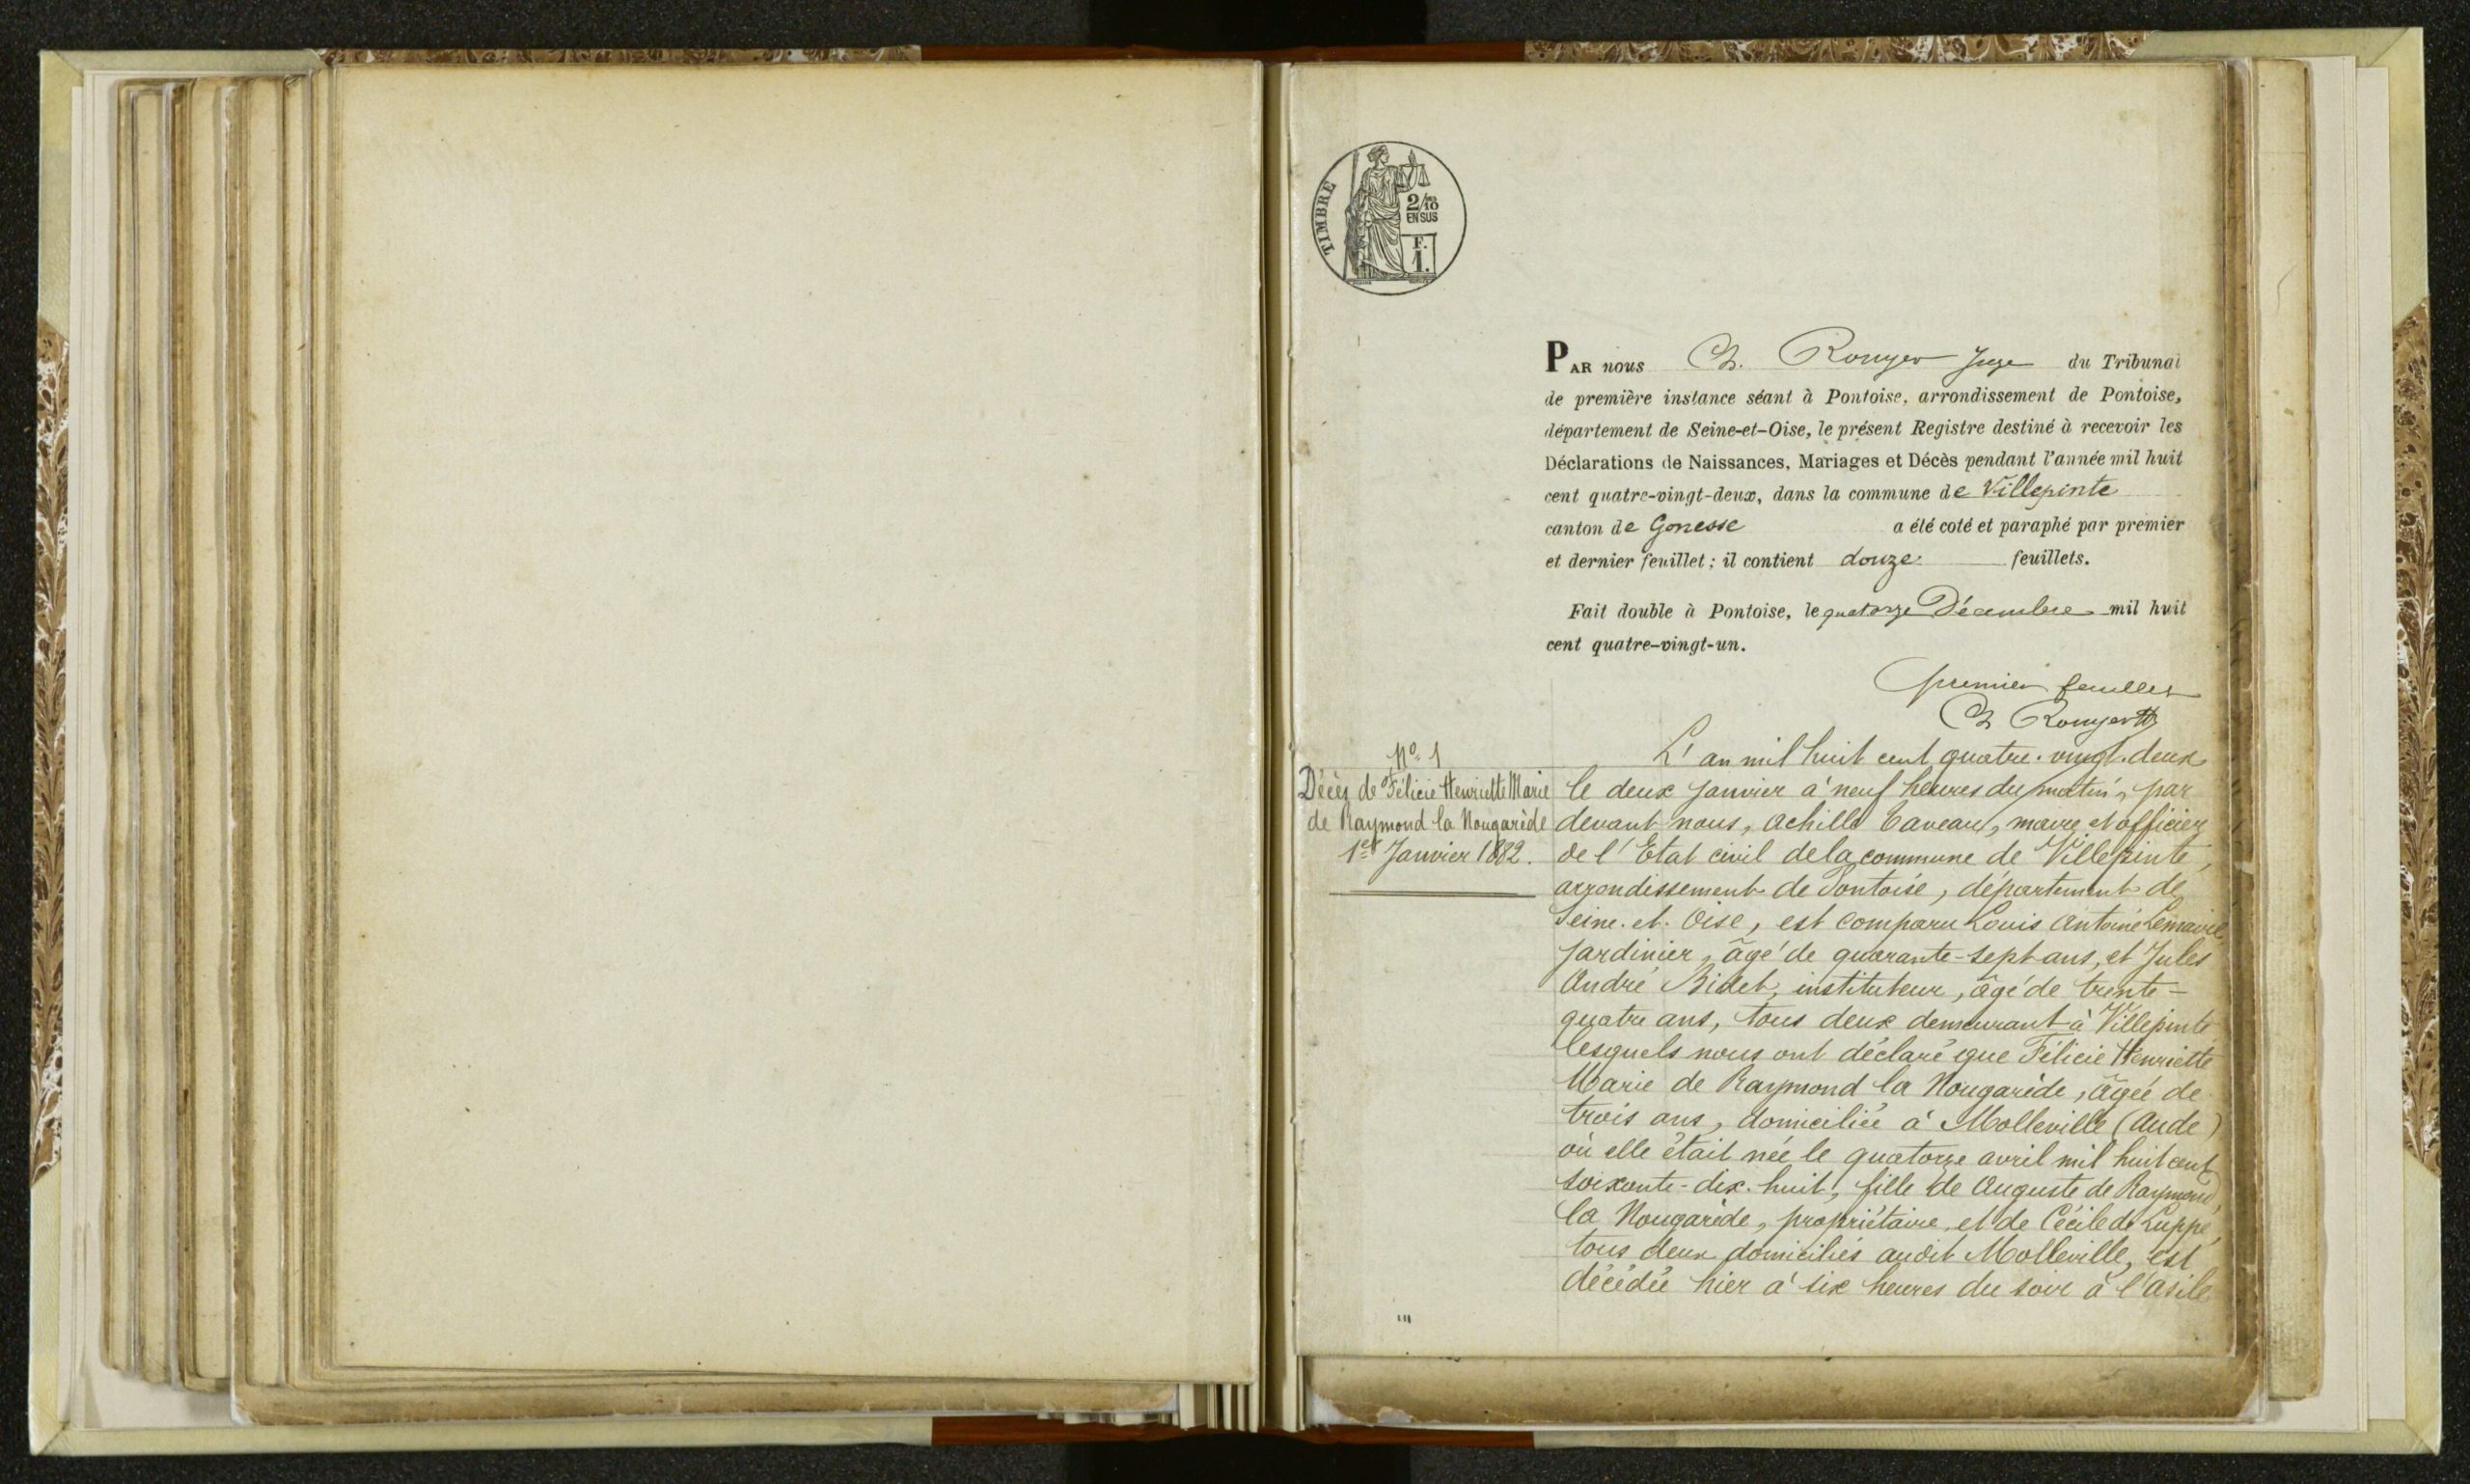 TIMBRE
2/10
EN SUS
F.
1.
PAR nous Ch. Rouyer Juge du Tribunal
de première instance séant à Pontoise, arrondissement de Pontoise,
département de Seine-et-Oise, le présent Registre destiné à recevoir les
Déclarations de Naissances, Mariages et Décès pendant l'année mil huit
cent quatre-vingt-deux, dans la commune de Villepinte
canton de Gonesse a été coté et paraphé par premier
et dernier feuillet ; il contient douze feuillets.
Fait double à Pontoise, le quatorze Décembre mil huit
cent quatre-vingt-un.
premier feuillet
Ch Rouyer
N° 1
Décès de Félicie Henriette Marie
de Raymond la Nougarède
1er Janvier 1882.
L'an mil huit cent quatre-vingt-deux
le deux janvier à neuf heures du matin, par
devant nous, Achille Taveau, maire et officier
de l'Etat civil de la commune de Villepinte,
arrondissement de Pontoise, département de
Seine-et-Oise, est comparu Louis Antoine Lemaire
jardinier, âgé de quarante-sept ans, et Jules
André Bidet, instituteur, âgé de trente-
quatre ans, tous deux demeurant à Villepinte
lesquels nous ont déclaré que Félicie Henriette
Marie de Raymond la Nougarède, âgée de
trois ans, domiciliée à Molleville (Aude)
où elle était née le quatorze avril mil huit cent
soixante-dix-huit, fille de Auguste de Raymond,
la Nougarède, propriétaire, et de Cécile de Luppé,
tous deux domiciliés audit Molleville, est
décédée hier à six heures du soir à l'asile